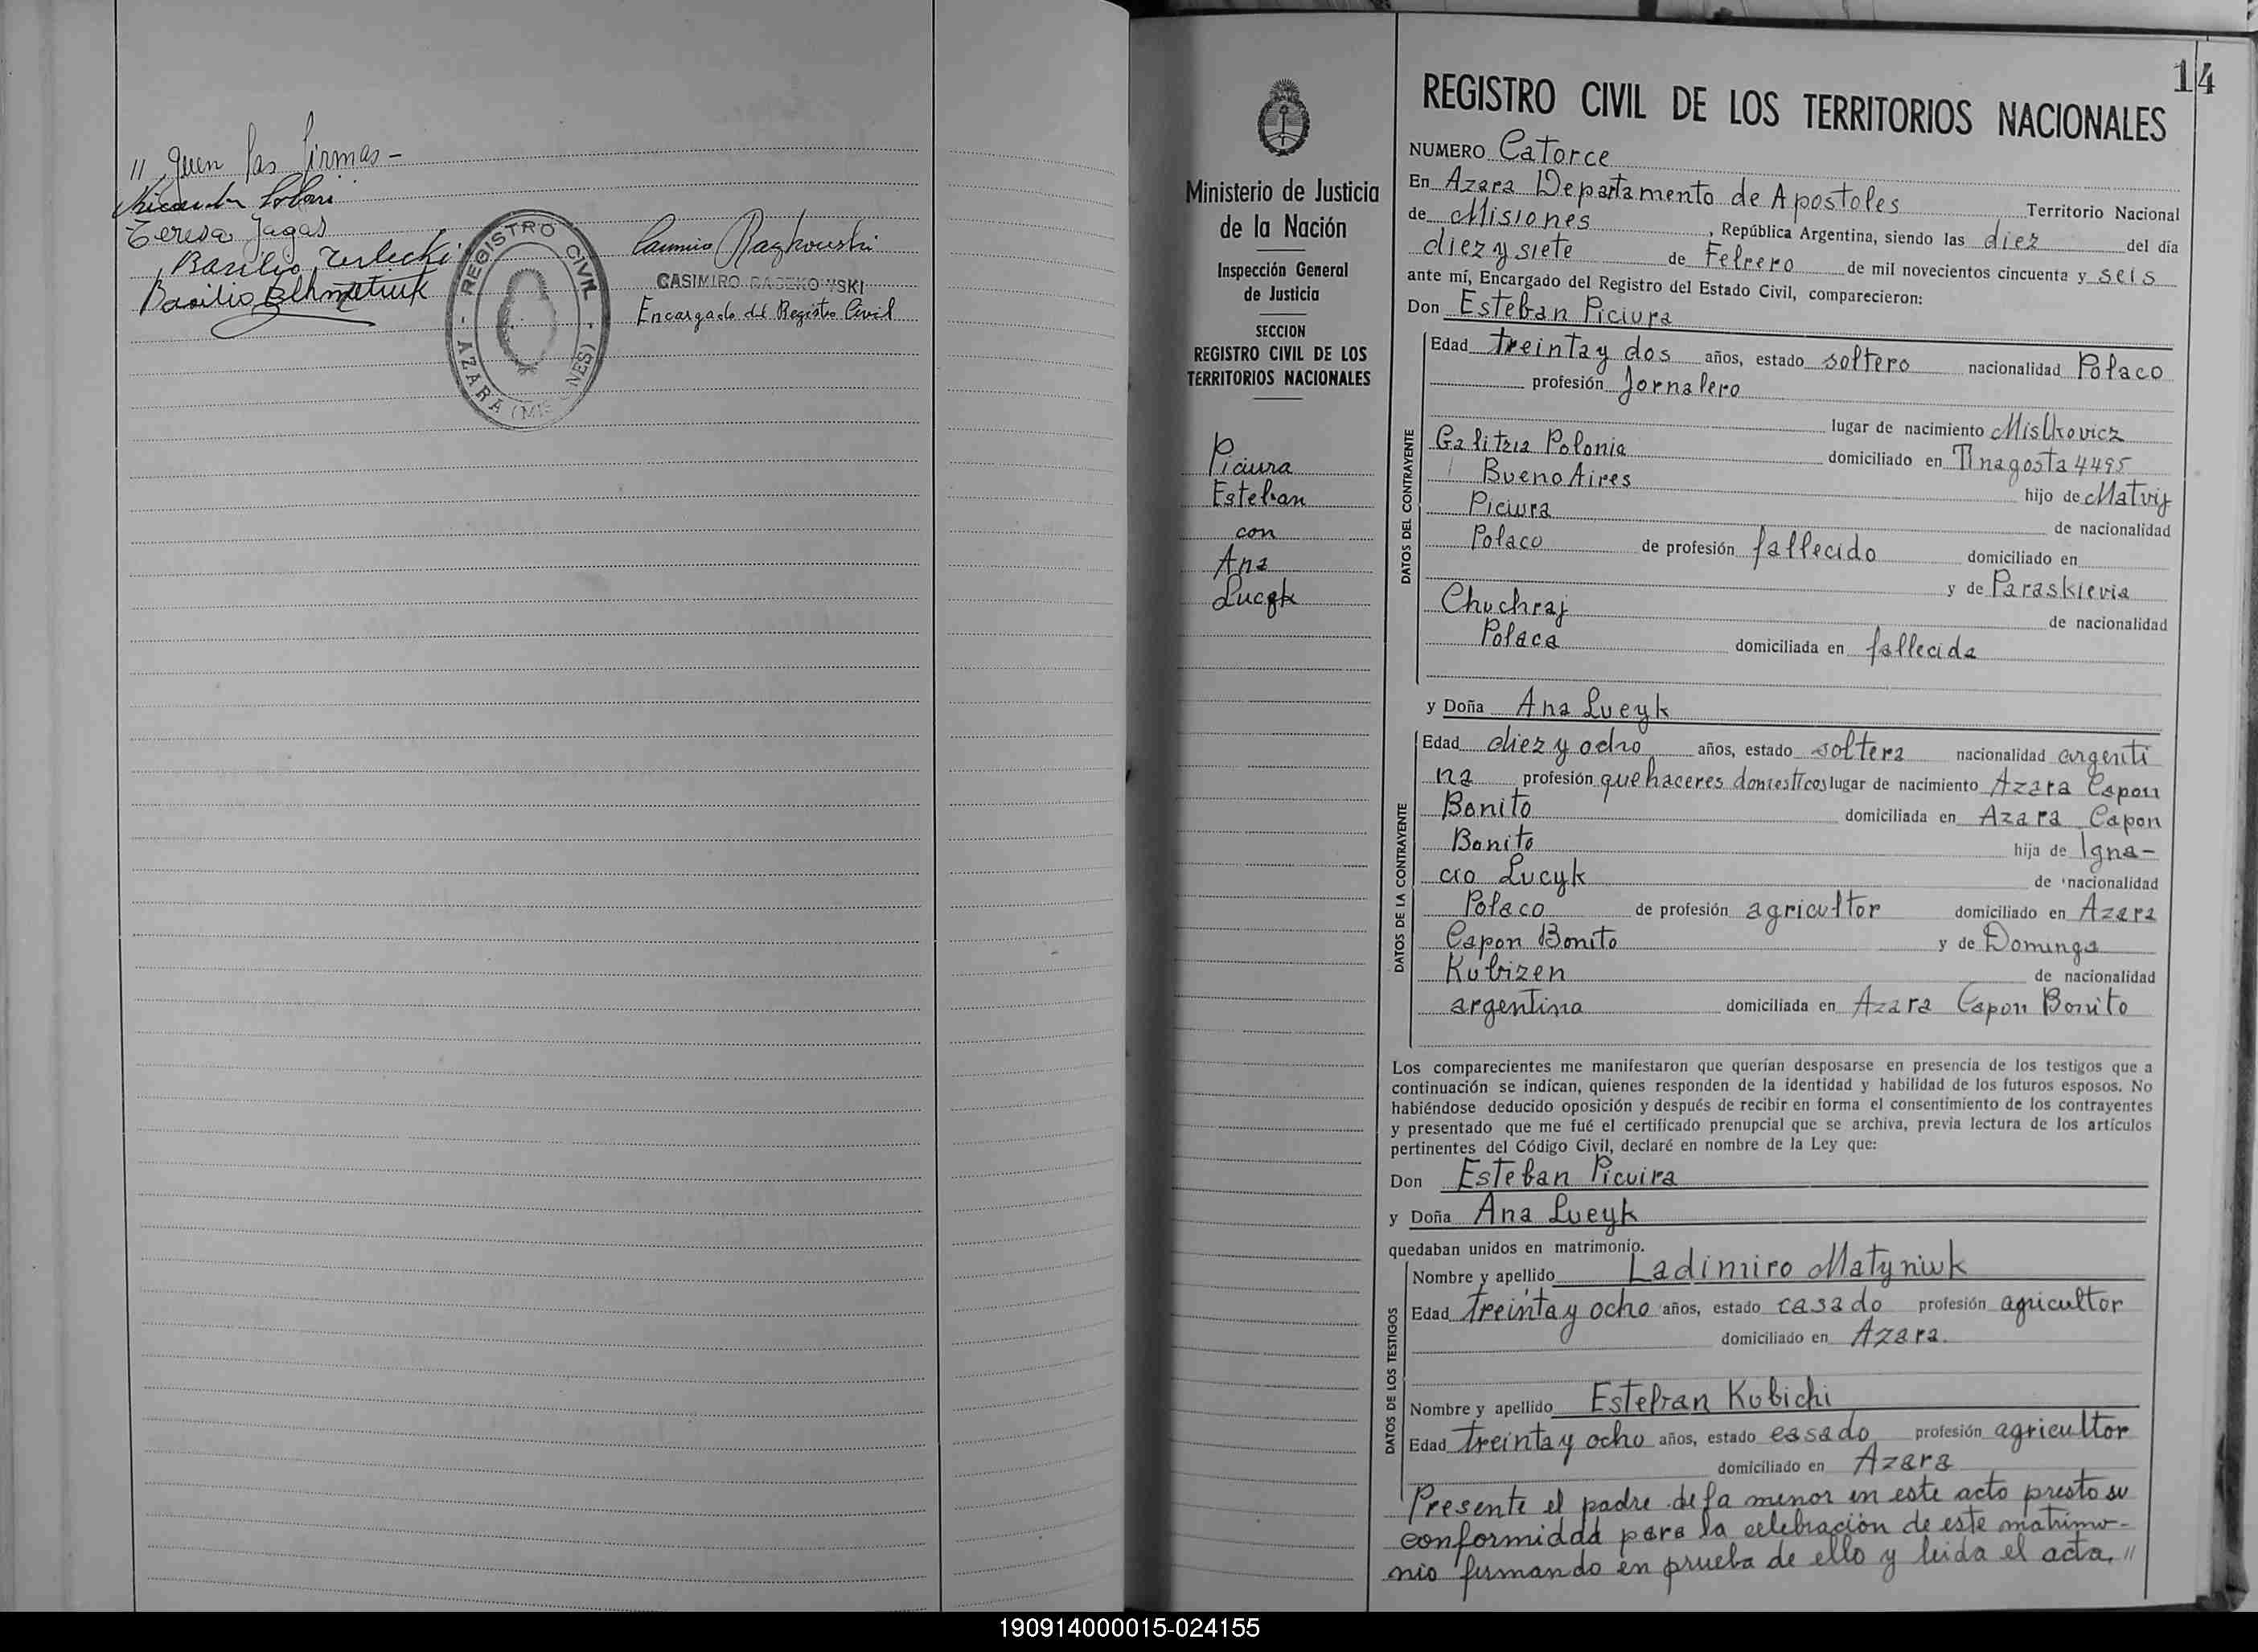 // guen las firmas -
Teresa Jagas
Basilio Terlecki
Basilio
REGISTRO CIVIL
AZARA (MISIONES)
CASIMIRO RASZKOWSKI
Encargado del Registro Civil
14
Ministerio de Justicia
de la Nación
Inspección General
de Justicia
SECCION
REGISTRO CIVIL DE LOS
TERRITORIOS NACIONALES
Piciura
Esteban
con
Ana
Lucyk
REGISTRO CIVIL DE LOS TERRITORIOS NACIONALES
NUMERO Catorce
En Azara Departamento de Apostoles Territorio Nacional
de Misiones, República Argentina, siendo las diez del día
diez y siete de Febrero de mil novecientos cincuenta y seis
ante mí, Encargado del Registro del Estado Civil, comparecieron:
Don Esteban Piciura
DATOS DEL CONTRAYENTE
Edad treinta y dos años, estado soltero nacionalidad Polaco
profesión Jornalero
lugar de nacimiento Mislkovicz
Galitzia Polonia domiciliado en Tinagosta 4495
Bueno Aires hijo de Matvij
Piciura de nacionalidad
Polaco de profesión fallecido domiciliado en
y de Paraskievia
Chuchraj de nacionalidad
Polaca domiciliada en fallecida
y Doña Ana Lueyk
DATOS DE LA CONTRAYENTE
Edad diez y ocho años, estado soltera nacionalidad argenti
na profesión quehaceres domesticos lugar de nacimiento Azara Capon
Bonito domiciliada en Azara Capon
Bonito hija de Igna-
cio Lucyk de nacionalidad
Polaco de profesión agricultor domiciliado en Azara
Capon Bonito y de Dominga
Kubizen de nacionalidad
argentina domiciliada en Azara Capon Bonito
Los comparecientes me manifestaron que querían desposarse en presencia de los testigos que a
continuación se indican, quienes responden de la identidad y habilidad de los futuros esposos. No
habiéndose deducido oposición y después de recibir en forma el consentimiento de los contrayentes
y presentado que me fué el certificado prenupcial que se archiva, previa lectura de los artículos
pertinentes del Código Civil, declaré en nombre de la Ley que:
Don Esteban Picuira
y Doña Ana Lueyk
quedaban unidos en matrimonio.
DATOS DE LOS TESTIGOS
Nombre y apellido Ladimiro Matyniuk
Edad treinta y ocho años, estado casado profesión agricultor
domiciliado en Azara.
Nombre y apellido Esteban Kubichi
Edad treinta y ocho años, estado casado profesión agricultor
domiciliado en Azara
Presente el padre de la menor en este acto presto su
conformidad para la celebración de este matrimo-
nio firmando en prueba de ello y leida el acta, //
190914000015-024155